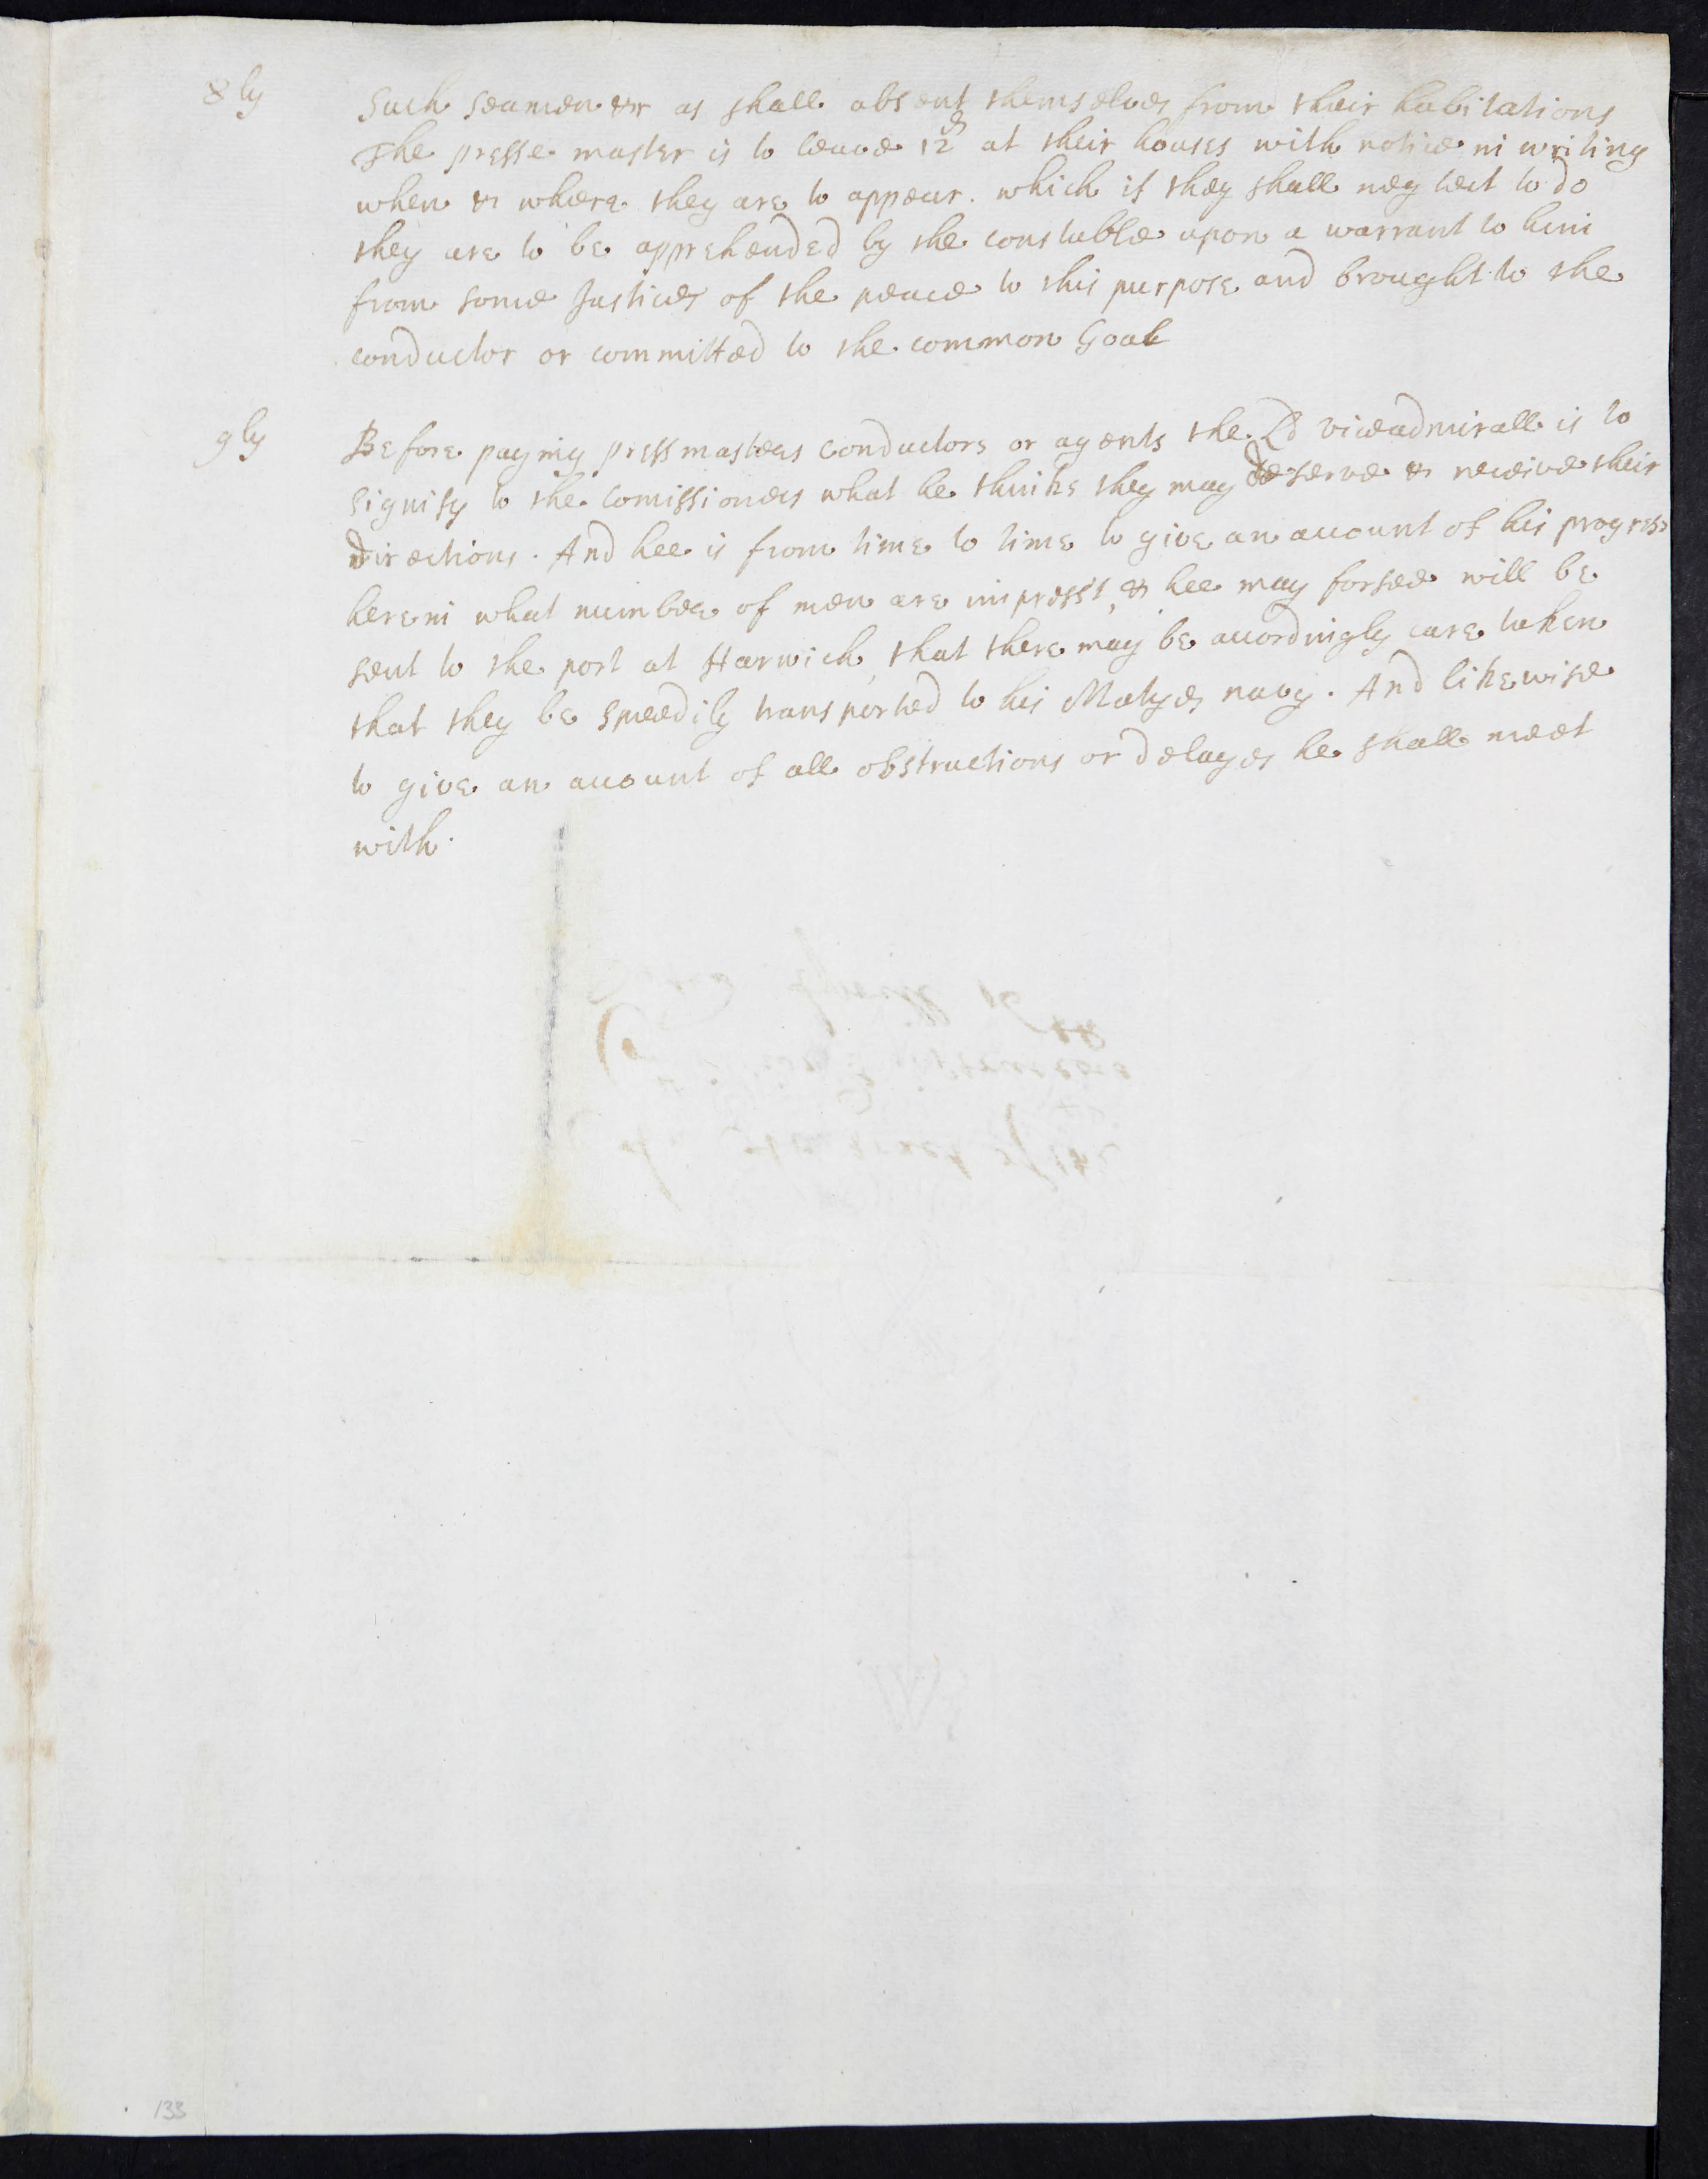 8ly Such seamen &c as shall absent themselves from their habitations
The presse master is to leave 12d at their houses with notice in writing
when & where they are to appear. which if they shall neglect to do
they are to be apprehended by the constable upon a warrant to him
from some Justices of the peace to this purpose and brought to the
conductor or committed to the common Goal
9ly Before paying pressmasters conductors or agents the Ld viceadmirall is to
signify to the Comissioners what he thinks they may deserve & receive their
directions. And hee is from time to time to give an account of his progress
herein what number of men are imprest, & hee may forsee will be
sent to the port at Harwich, that there may be accordingly care taken
that they be speedily transported to his Matyes navy. And likewise
to give an account of all obstructions or delayes he shall meet
with.
133